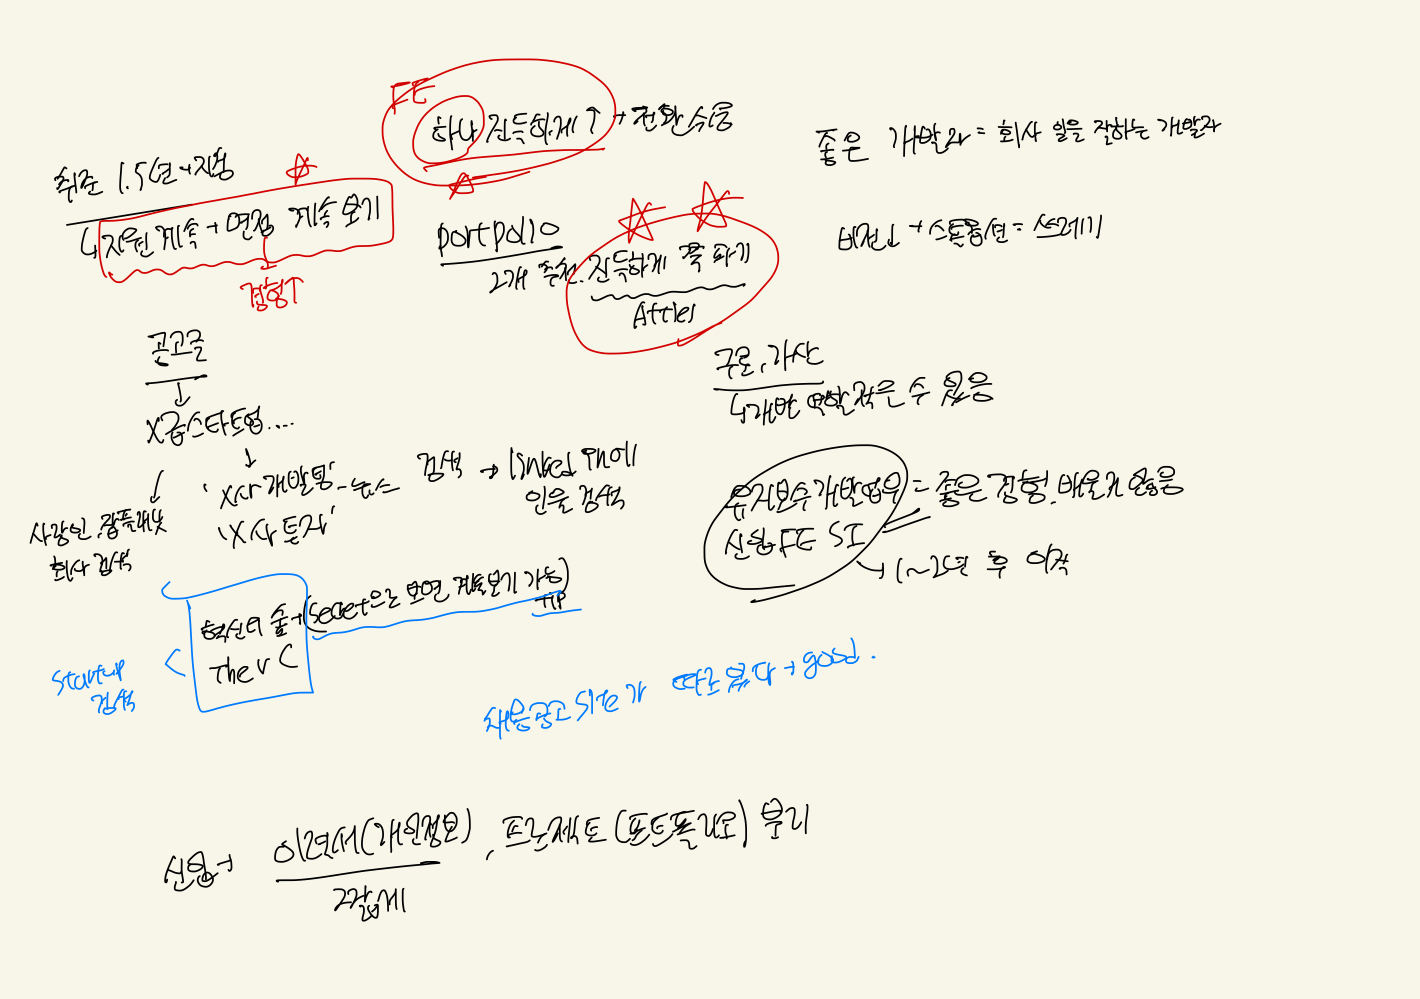 FE
하나 진득하게 ↑ → 전환 쉬움
좋은 개발자 = 회사 일을 잘하는 개발자
취준 1.5년 → 지옹
↳ 지원 계속 → 면접 계속 보기
경험↑
portpolio
2개 추천. 진득하게 쭉 파기
비전↓ → 스톡옵션 = 쓰레기
콘고글
X급스타트업....
구로, 가산
↳ 개발 역할 적은 수 있음
'X사 개발팀' - 뉴스 검색 → linked in에
인을 검색
'X사 투자'
사람인, 잡플래닛
회사 검색
유지보수 개발업무 = 좋은 경험, 배울게 많음
신입 FE SI
→ 1~2년 후 이직
혁신의 숲 → (secret으로 보면 계속보기 가능)
TIP
The V C
startup
검색
채용공고 site가 따로 있다 → good.
신입 → 이력서(개인정보), 프로젝트 (포트폴리오) 분리
간략게